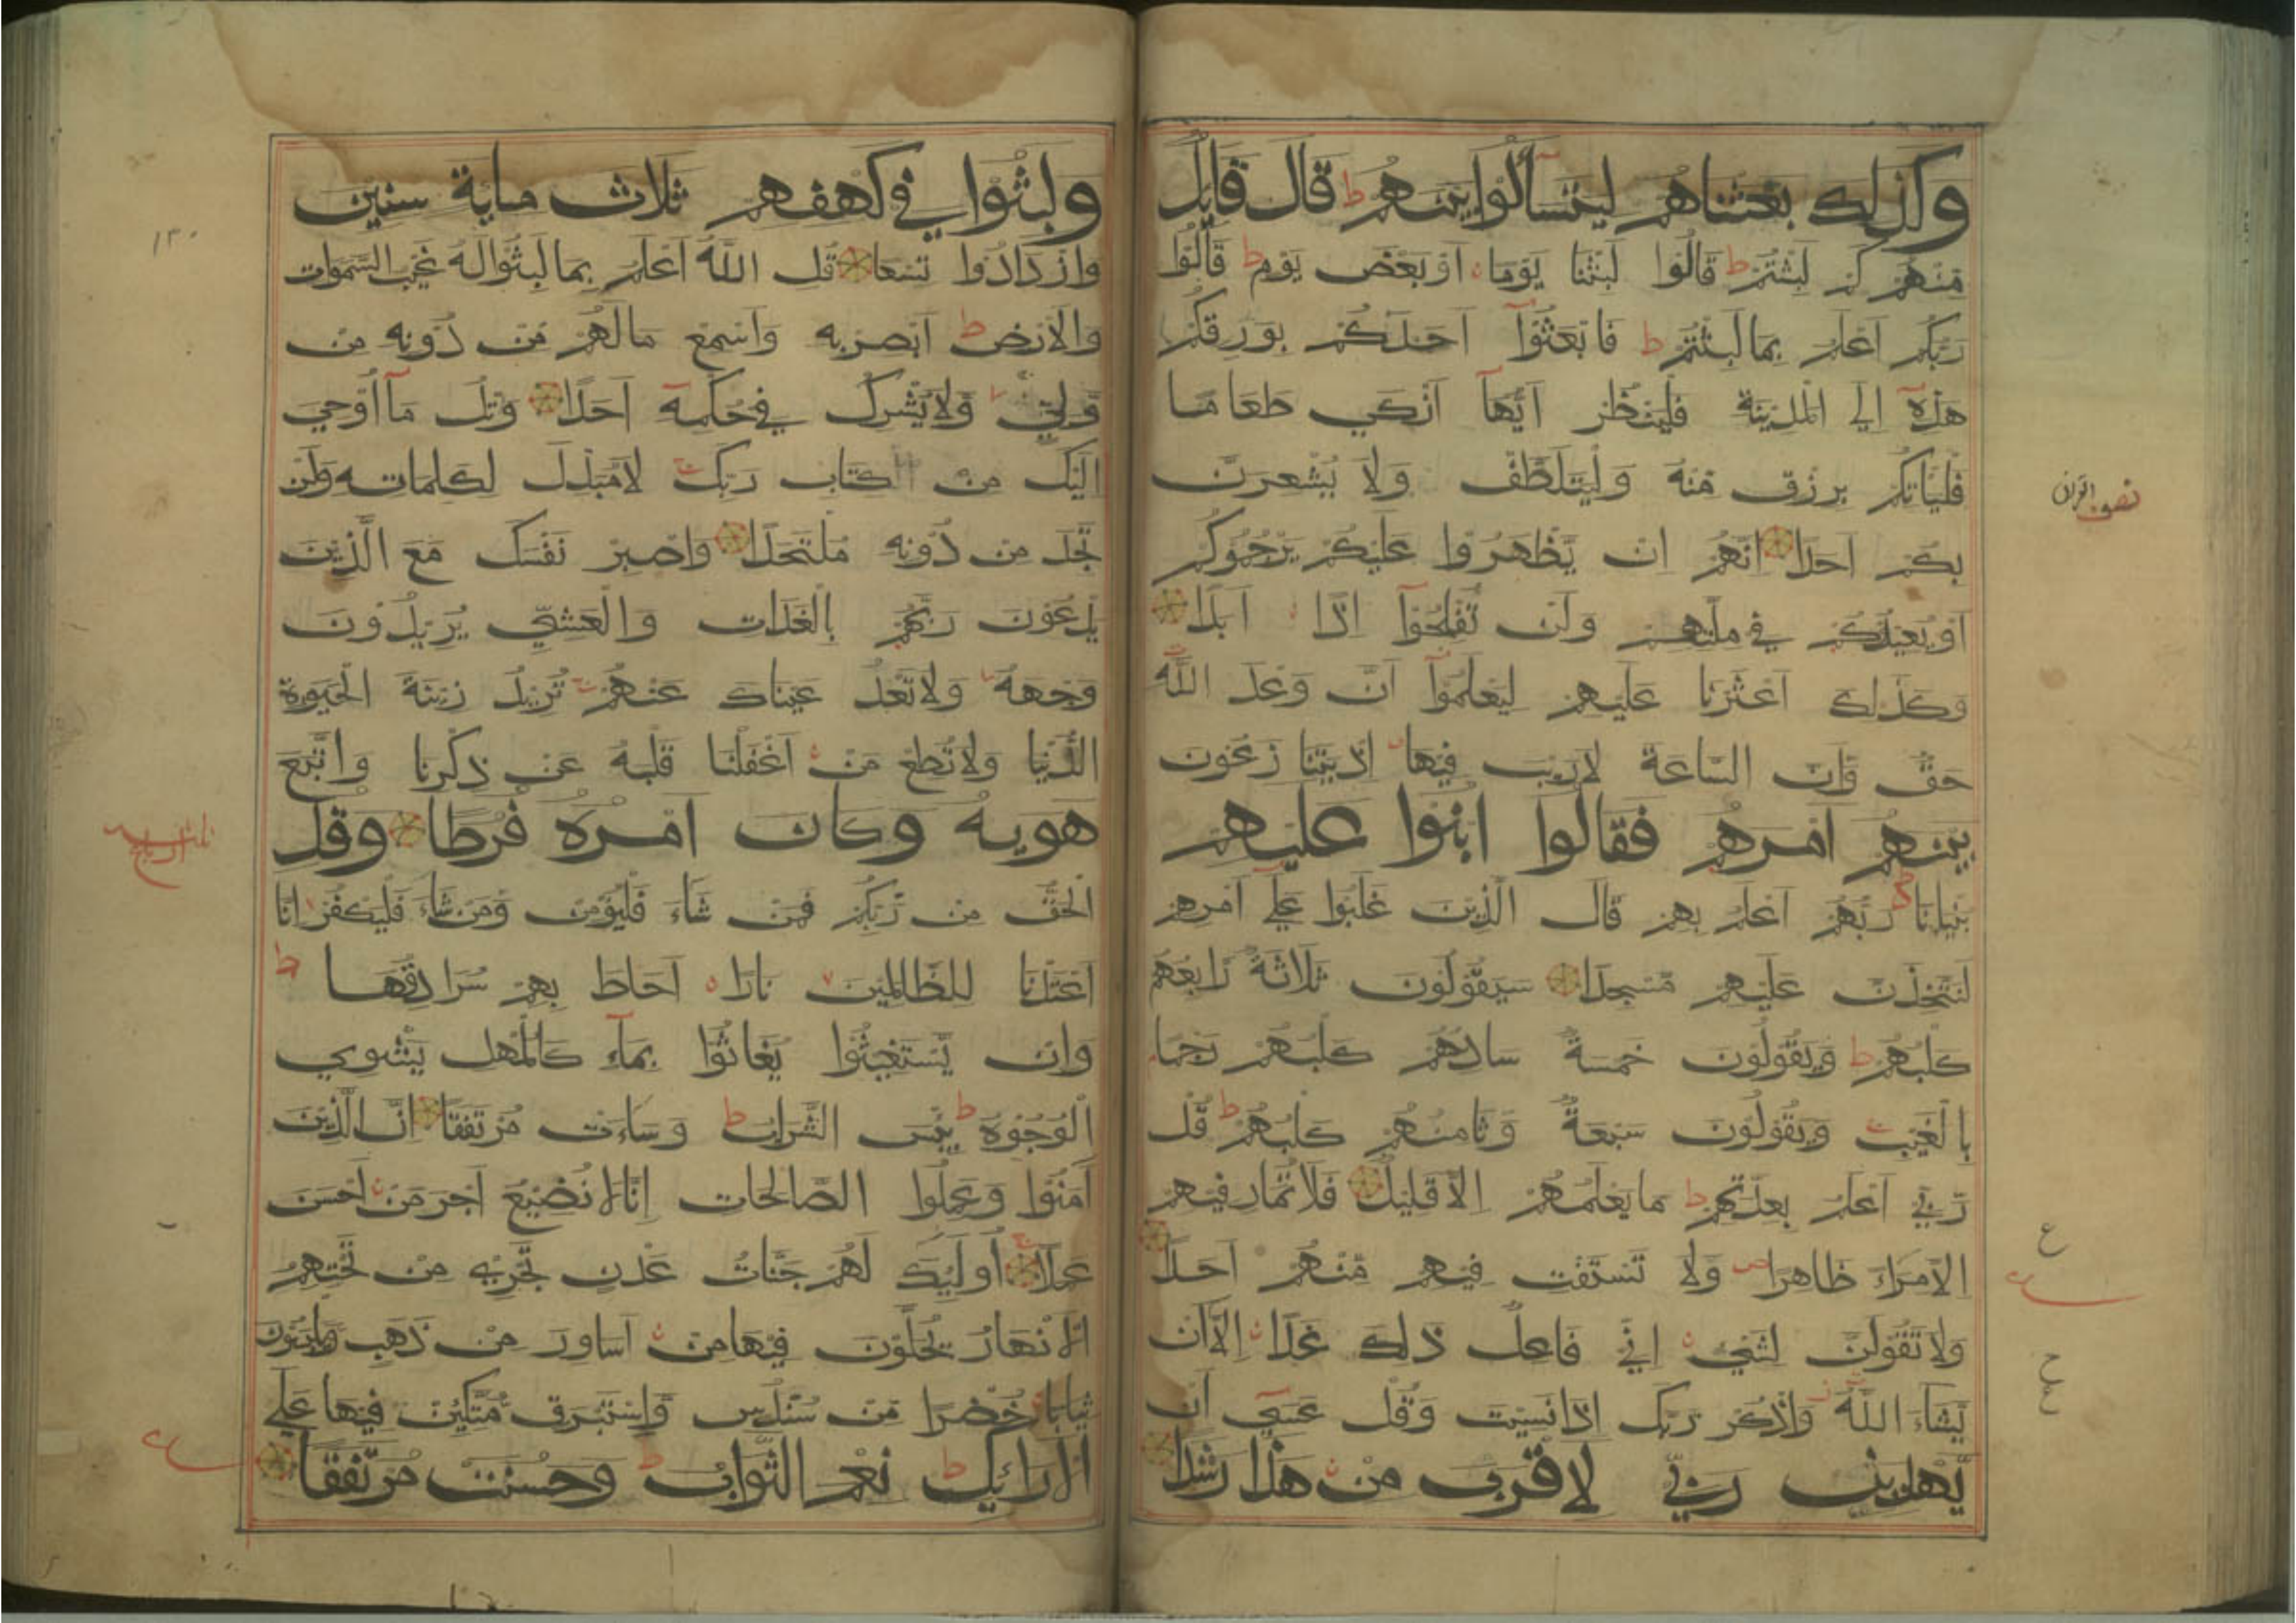 وكذلك بعثناهم ليتسألوا بينهم ط قال قايل
منهم كم لبثتم ط قالوا لبثنا يوما او بعض يوم ط قالوا
ربكم اعلم بما لبثتم ط فابعثوا احدكم بورقكم
هذه الى المدينة فلينظر ايها ازكى طعاما
فلياتكم برزق منه وليتلطف ولا يشعرن
بكم احدا انهم ان يظهروا عليكم يرجموكم
او يعيدوكم في ملتهم ولن تفلحوا اذا ابدا
وكذلك اعثرنا عليهم ليعلموا ان وعد الله
حق وان الساعة لا ريب فيها اذ يتنازعون
بينهم امرهم فقالوا ابنوا عليهم
بنيانا ربهم اعلم بهم قال الذين غلبوا على امرهم
لنتخذن عليهم مسجدا سيقولون ثلاثة رابعهم
كلبهم ط ويقولون خمسة سادهم كلبهم رجما
بالغيب ويقولون سبعة وثامنهم كلبهم ط قل
ربي اعلم بعدتهم ط ما يعلمهم الا قليل فلا تمار فيهم
الا مراء ظاهرا ولا تستفت فيهم منهم احدا
ولا تقولن لشيء اني فاعل ذلك غدا الا ان
يشاء الله واذكر ربك اذا نسيت وقل عسى ان
يهدين ربي لاقرب من هذا رشدا
نصف القران
ع
ولبثوا في كهفهم ثلاث ماية سنين
وازدادوا تسعا قل الله اعلم بما لبثوا له غيب السموات
والارض ط ابصر به واسمع ما لهم من دونه من
ولي ولا يشرك في حكمه احدا واتل ما اوحي
اليك من كتاب ربك لا مبدل لكلماته ولن
تجد من دونه ملتحدا واصبر نفسك مع الذين
يدعون ربهم بالغدات والعشي يريدون
وجهه ولا تعد عيناك عنهم تريد زينة الحيوة
الدنيا ولا تطع من اغفلنا قلبه عن ذكرنا واتبع
هويه وكان امره فرطا وقل
الحق من ربكم فمن شاء فليؤمن ومن شاء فليكفر انا
اعتدنا للظالمين نارا احاط بهم سرادقها ط
وان يستغيثوا يغاثوا بماء كالمهل يشوي
الوجوه ط بيس الشراب ط وساءت مرتفقا ان الذين
امنوا وعملوا الصالحات انا لا نضيع اجر من احسن
عملا اوليك لهم جنات عدن تجري من تحتهم
الانهار يحلون فيها من اساور من ذهب ويلبسون
ثيابا خضرا من سندس واستبرق متكين فيها على
الارائك ط نعم الثواب ط وحسنت مرتفقا
١٣٠